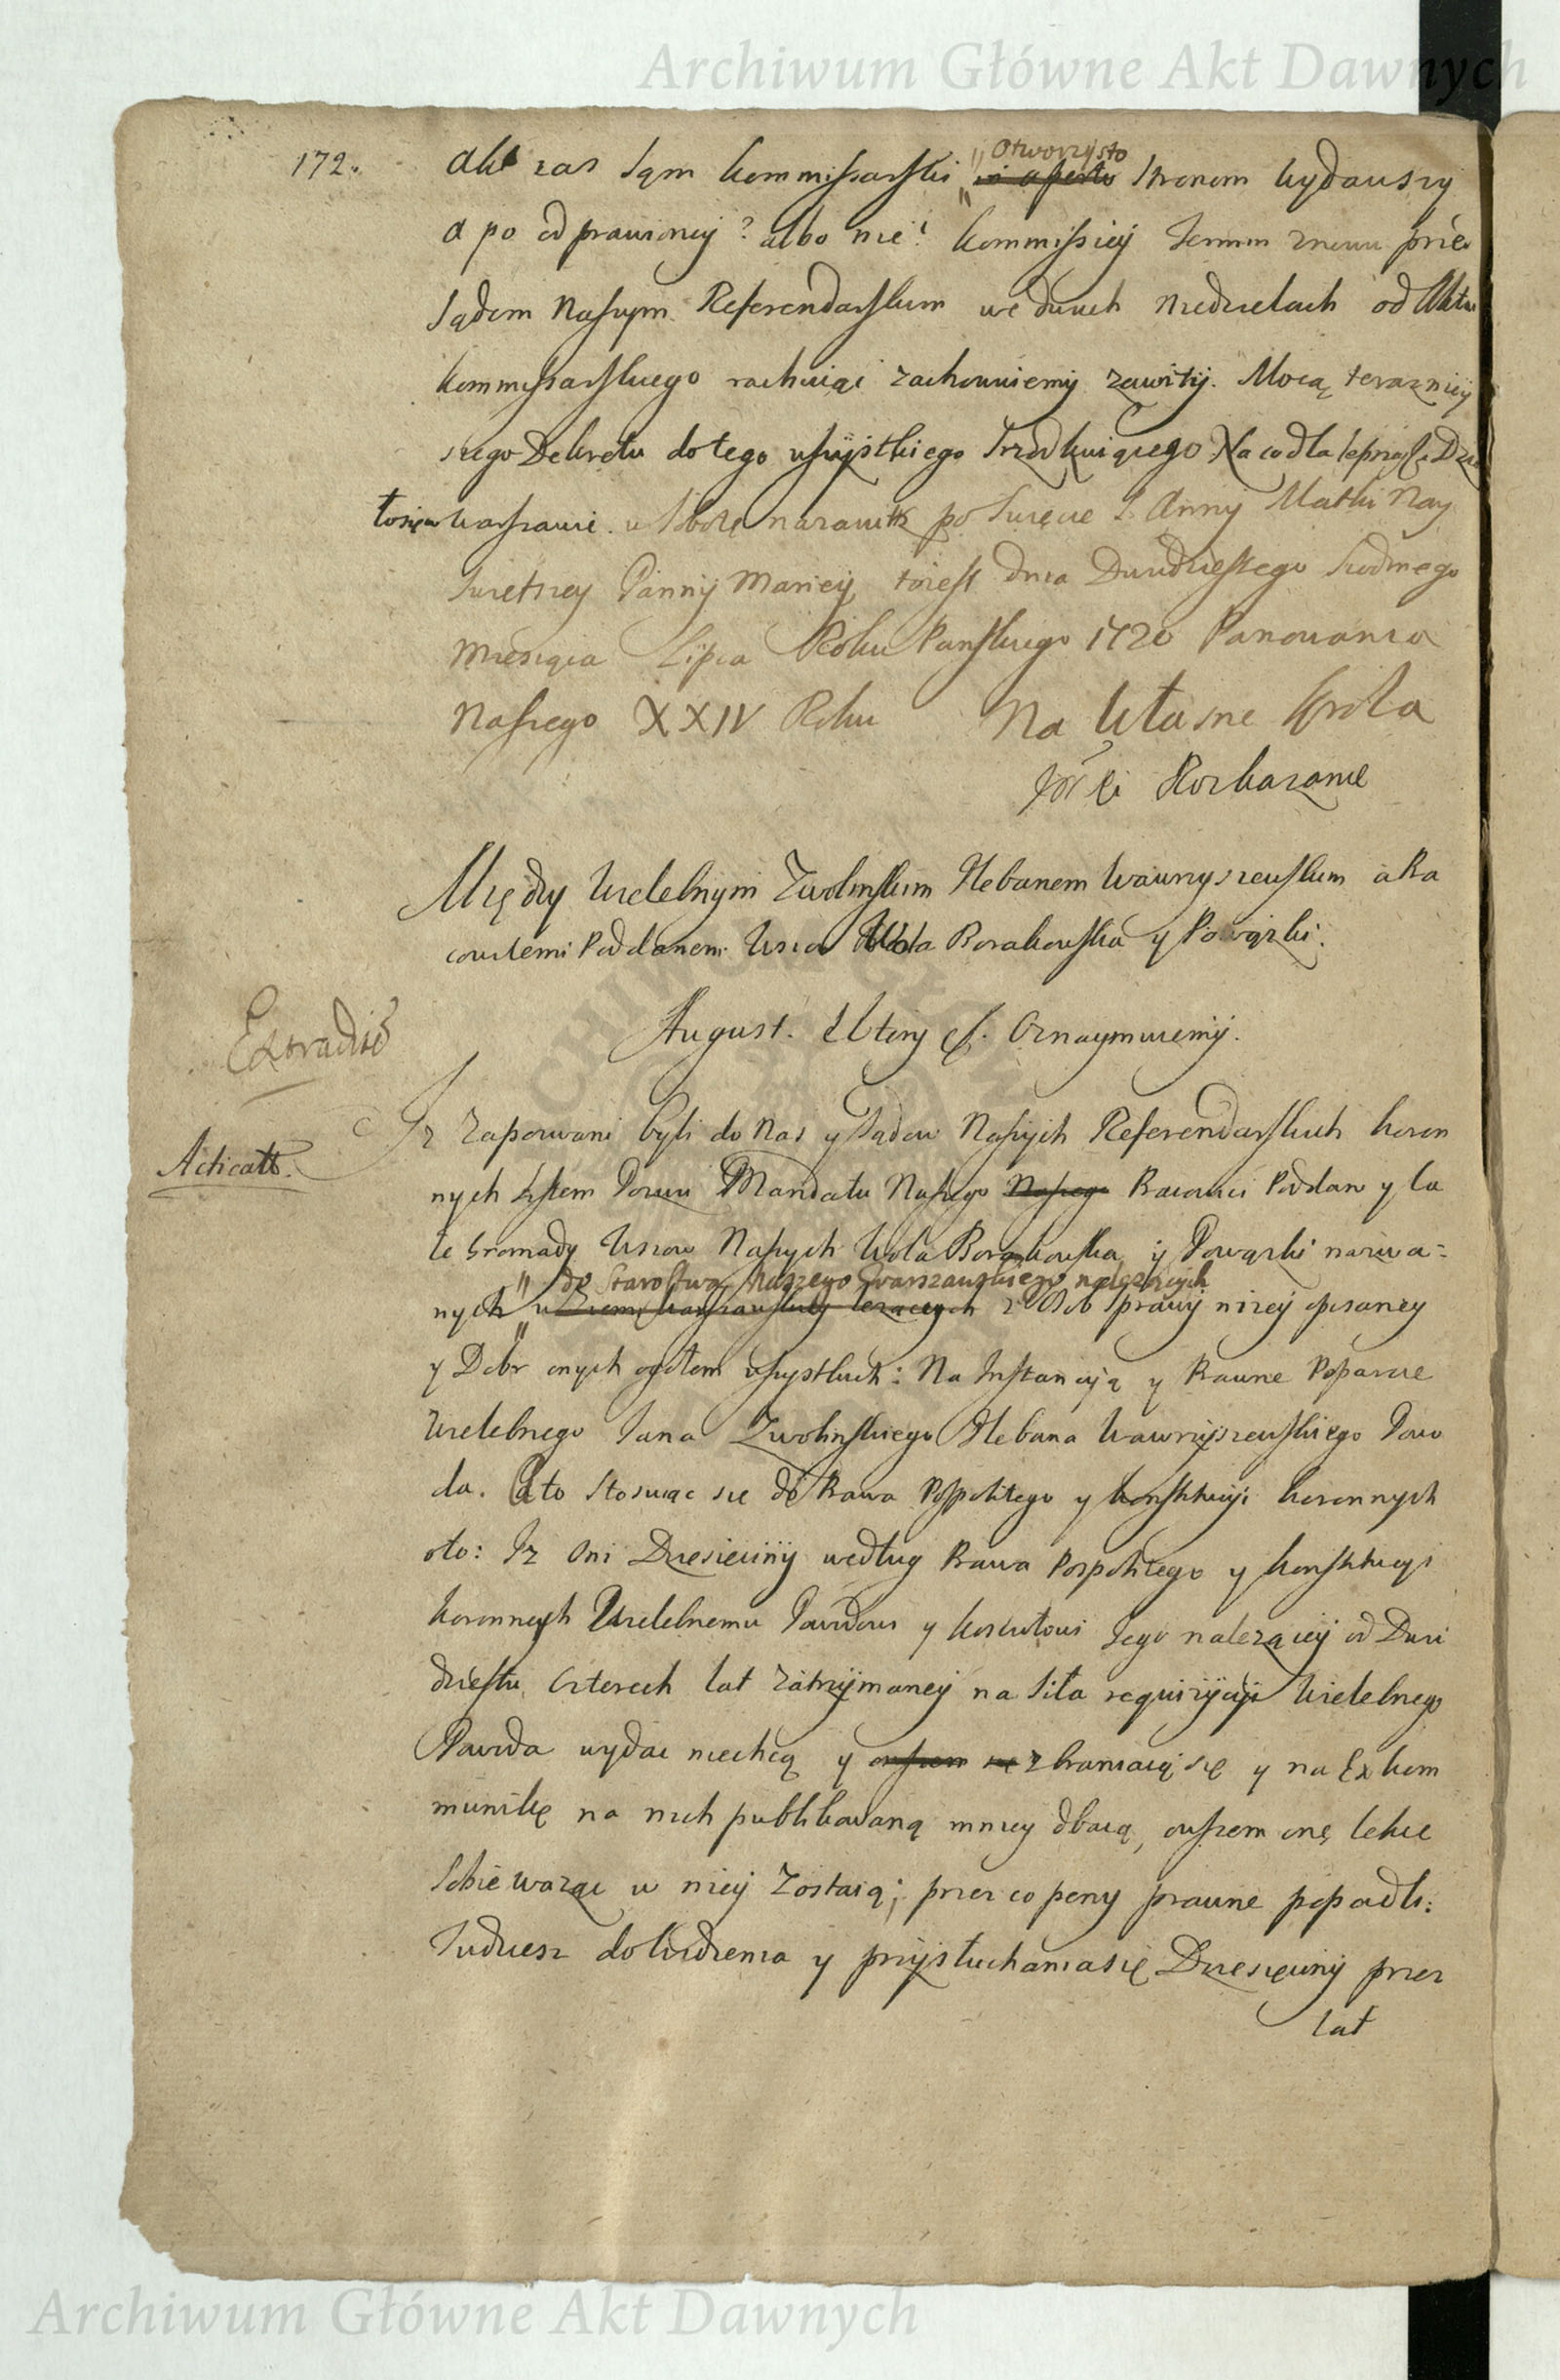 Archiwum Główne Akt Dawnych
172.
Akt zas sąm kommissarski in aperto Otworzysto Stronom wydawszy
a po odprawioney? albo nie? kommissiey Termin znowu prze
Sądem Naszym Referendarskim we dwuch Niedzielach od Aktu
kommissarskiego rachuiąc zachowuiemy zawity. Mocą terazniey
szego Dekretu do tego wszystkiego Na co dla lepszey
w Warszawie. w Sobotę nazaiutrz po Swięcie S. Anny Matki Nay
swietszey Panny Mariey, toiest dnia Dwudziestego Siodmego
Miesiąca Lipca Roku Panskiego 1720 Panowania
Naszego XXIV Roku Na Własne Krola
Rozkazanie
Między Wielebnym Zwolinskim Plebanem Wawrzyszewskim a Pra
cowitemi Poddanemi Wsiow Wola Borakowska y Powązki.
August. Wtory &. Oznaymuiemy.
Extradit
Acticatt.
Iz Zapozwani byli do Nas y Sądow Naszych Referendarskich koron
nych Listem Pozwu Mandatu Naszego Naszego Pracowici Poddani y ca
łe Gromady Wsiow Naszych Wola Borakowska y Powązki nazwa=
do Starostwa Naszego Warszawskiego należących
nych w Ziemi Warszawskiey lezących z Osob sprawy nizey opisaney
y Dobr onych ogołem wszystkich: Na Instancyią y Prawne Poparcie
Wielebnego Jana Zwolinskiego Plebana Wawrzyszewskiego Powo
da. A to Stosuiąc się do Prawa Pospolitego y konstytucyi koronnych
oto: Iz Oni Dziesieciny według Prawa Pospolitego y konstytucyi
koronnych Wielebnemu Powodowi y kosciołowi Jego nalezącey od Dwu
dziestu czterech lat zatrzymaney na siła requizycyi Wielebnego
Powoda wydac niechcą y owszem się zbraniaią się y na Exkom
munikę na nich publikowaną mniey dbaią, owszem onę lekce
sobie waząc w niey zostaią; przez co peny prawne popadli.
Tudziesz do widzenia y przysłuchania się Dziesięciny przez
lat
Archiwum Główne Akt Dawnych